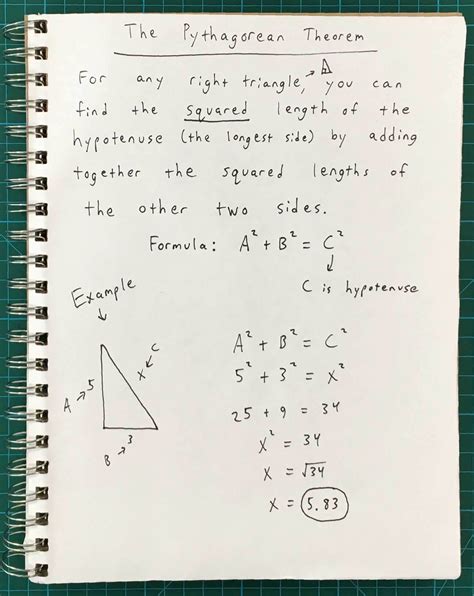 The Pythagorean Theorem
For any right triangle, you can
find the squared length of the
hypotenuse (the longest side) by adding
together the squared lengths of
the other two sides.
Formula: A² + B² = C²
C is hypotenuse
Example
A 5
B 3
C x
A² + B² = C²
5² + 3² = x²
25 + 9 = 34
x² = 34
x = √34
x = 5.83